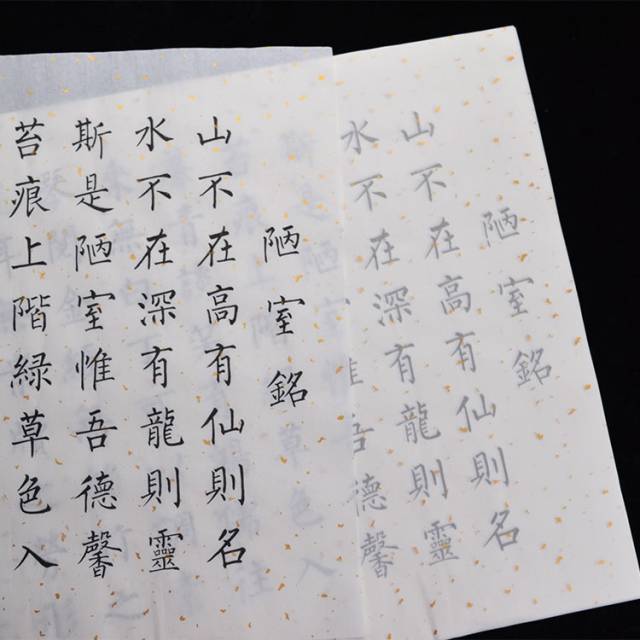 陋室銘
山不在高有仙則名
水不在深有龍則靈
斯是陋室惟吾德馨
苔痕上階綠草色入
陋室銘
山不在高有仙則名
水不在深有龍則靈